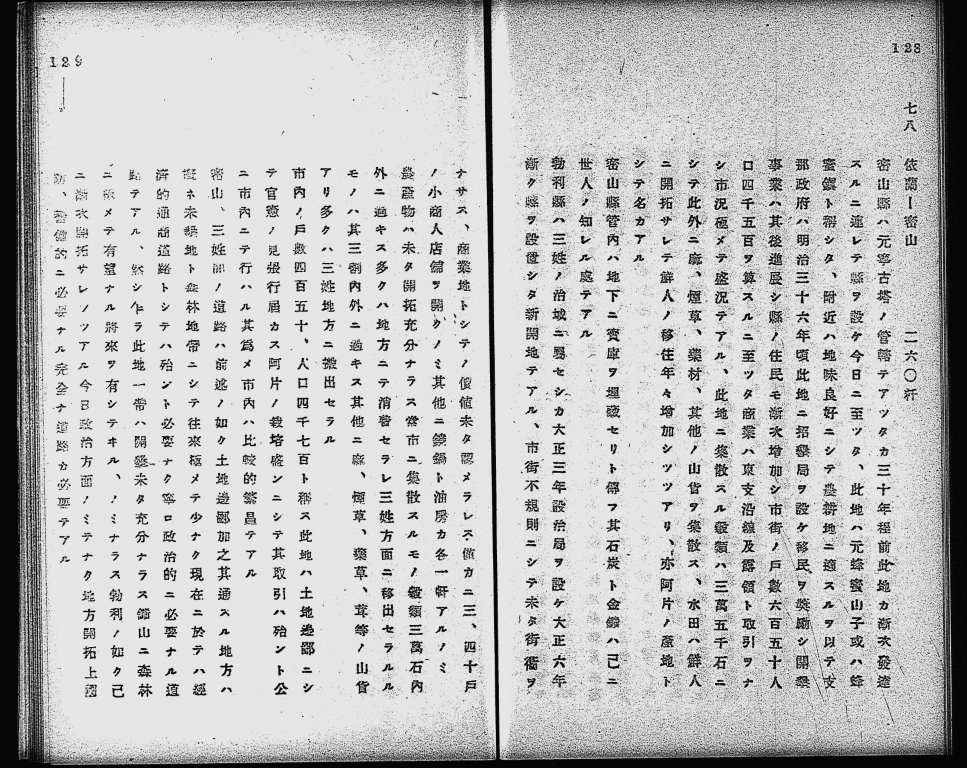 128
七八
依蘭ー密山　二六〇粁
密山縣ハ元寧古塔ノ管轄テアツタカ三十年程前此地カ漸次發達
スルニ連レテ縣ヲ設ケ今日ニ至ツタ、此地ハ元蜂蜜山子或ハ蜂
蜜鑼ト稱シタ、附近ハ地味良好ニシテ農耕地ニ適スルヲ以テ支
那政府ハ明治三十六年頃此地ニ招墾局ヲ設ケ移民ヲ奬勵シ開墾
事業ハ其後進展シ縣ノ住民モ漸次增加シ市街ノ戶數六百五十人
口四千五百ヲ算スルニ至ツタ商業ハ東支沿線及露領ト取引ヲナ
シ市況極メテ盛況テアル、此地ニ集散スル穀類ハ三萬五千石ニ
シテ此外ニ麻、煙草、藥材、其他ノ山貨ヲ集散ス、水田ハ鮮人
ニ開拓サレテ鮮人ノ移住年々增加シツツアリ、亦阿片ノ產地ト
シテ名カアル
密山縣管內ハ地下ニ寶庫ヲ埋藏セリト傳フ其石炭ト金鑛ハ己ニ
世人ノ知レル處テアル
勃利縣ハ三姓ノ治域ニ屬セシカ大正三年設治局ヲ設ケ大正六年
漸ク縣ヲ設置シタ新開地テアル、市街不規則ニシテ未タ街衢ヲ
129
ナサス、商業地トシテノ價値未タ認メラレス僅カニ三、四十戶
ノ小商人店舖ヲ開クノミ其他ニ燒鍋ト油房カ各一軒アルノミ
農產物ハ未タ開拓充分ナラス當市ニ集散スルモノ穀類三萬石內
外ニ過キス多クハ地方ニテ消費セラレ三姓方面ニ移出セラルル
モノハ其三割內外ニ過キス其他ニ麻、煙草、藥草、茸等ノ山貨
アリ多クハ三姓地方ニ搬出セラル
市內ノ戶數四百五十、人口四千七百ト稱ス此地ハ土地邊鄙ニシ
テ官憲ノ見張行屆カス阿片ノ栽培盛ンニシテ其取引ハ殆ント公
ニ市內ニテ行ハル其爲メ市內ハ比較的繁昌テアル
密山、三姓間ノ道路ハ前述ノ如ク土地邊鄙加之其通スル地方ハ
概ネ未墾地ト森林地帶ニシテ往來極メテ少ナク現在ニ於テハ經
濟的通商道路トシテハ殆ント必要ナク寧ロ政治的ニ必要ナル道
路テアル、然シ乍ラ此地一帶ハ開發未タ充分ナラス鑛山ニ森林
ニ極メテ有望ナル將來ヲ有シテキル、ノミナラス勃利ノ如ク己
ニ漸次開拓サレツツアル今日政治方面ノミテナク地方開拓上國
防、警備的ニ必要ナル完全ナ道路カ必要テアル